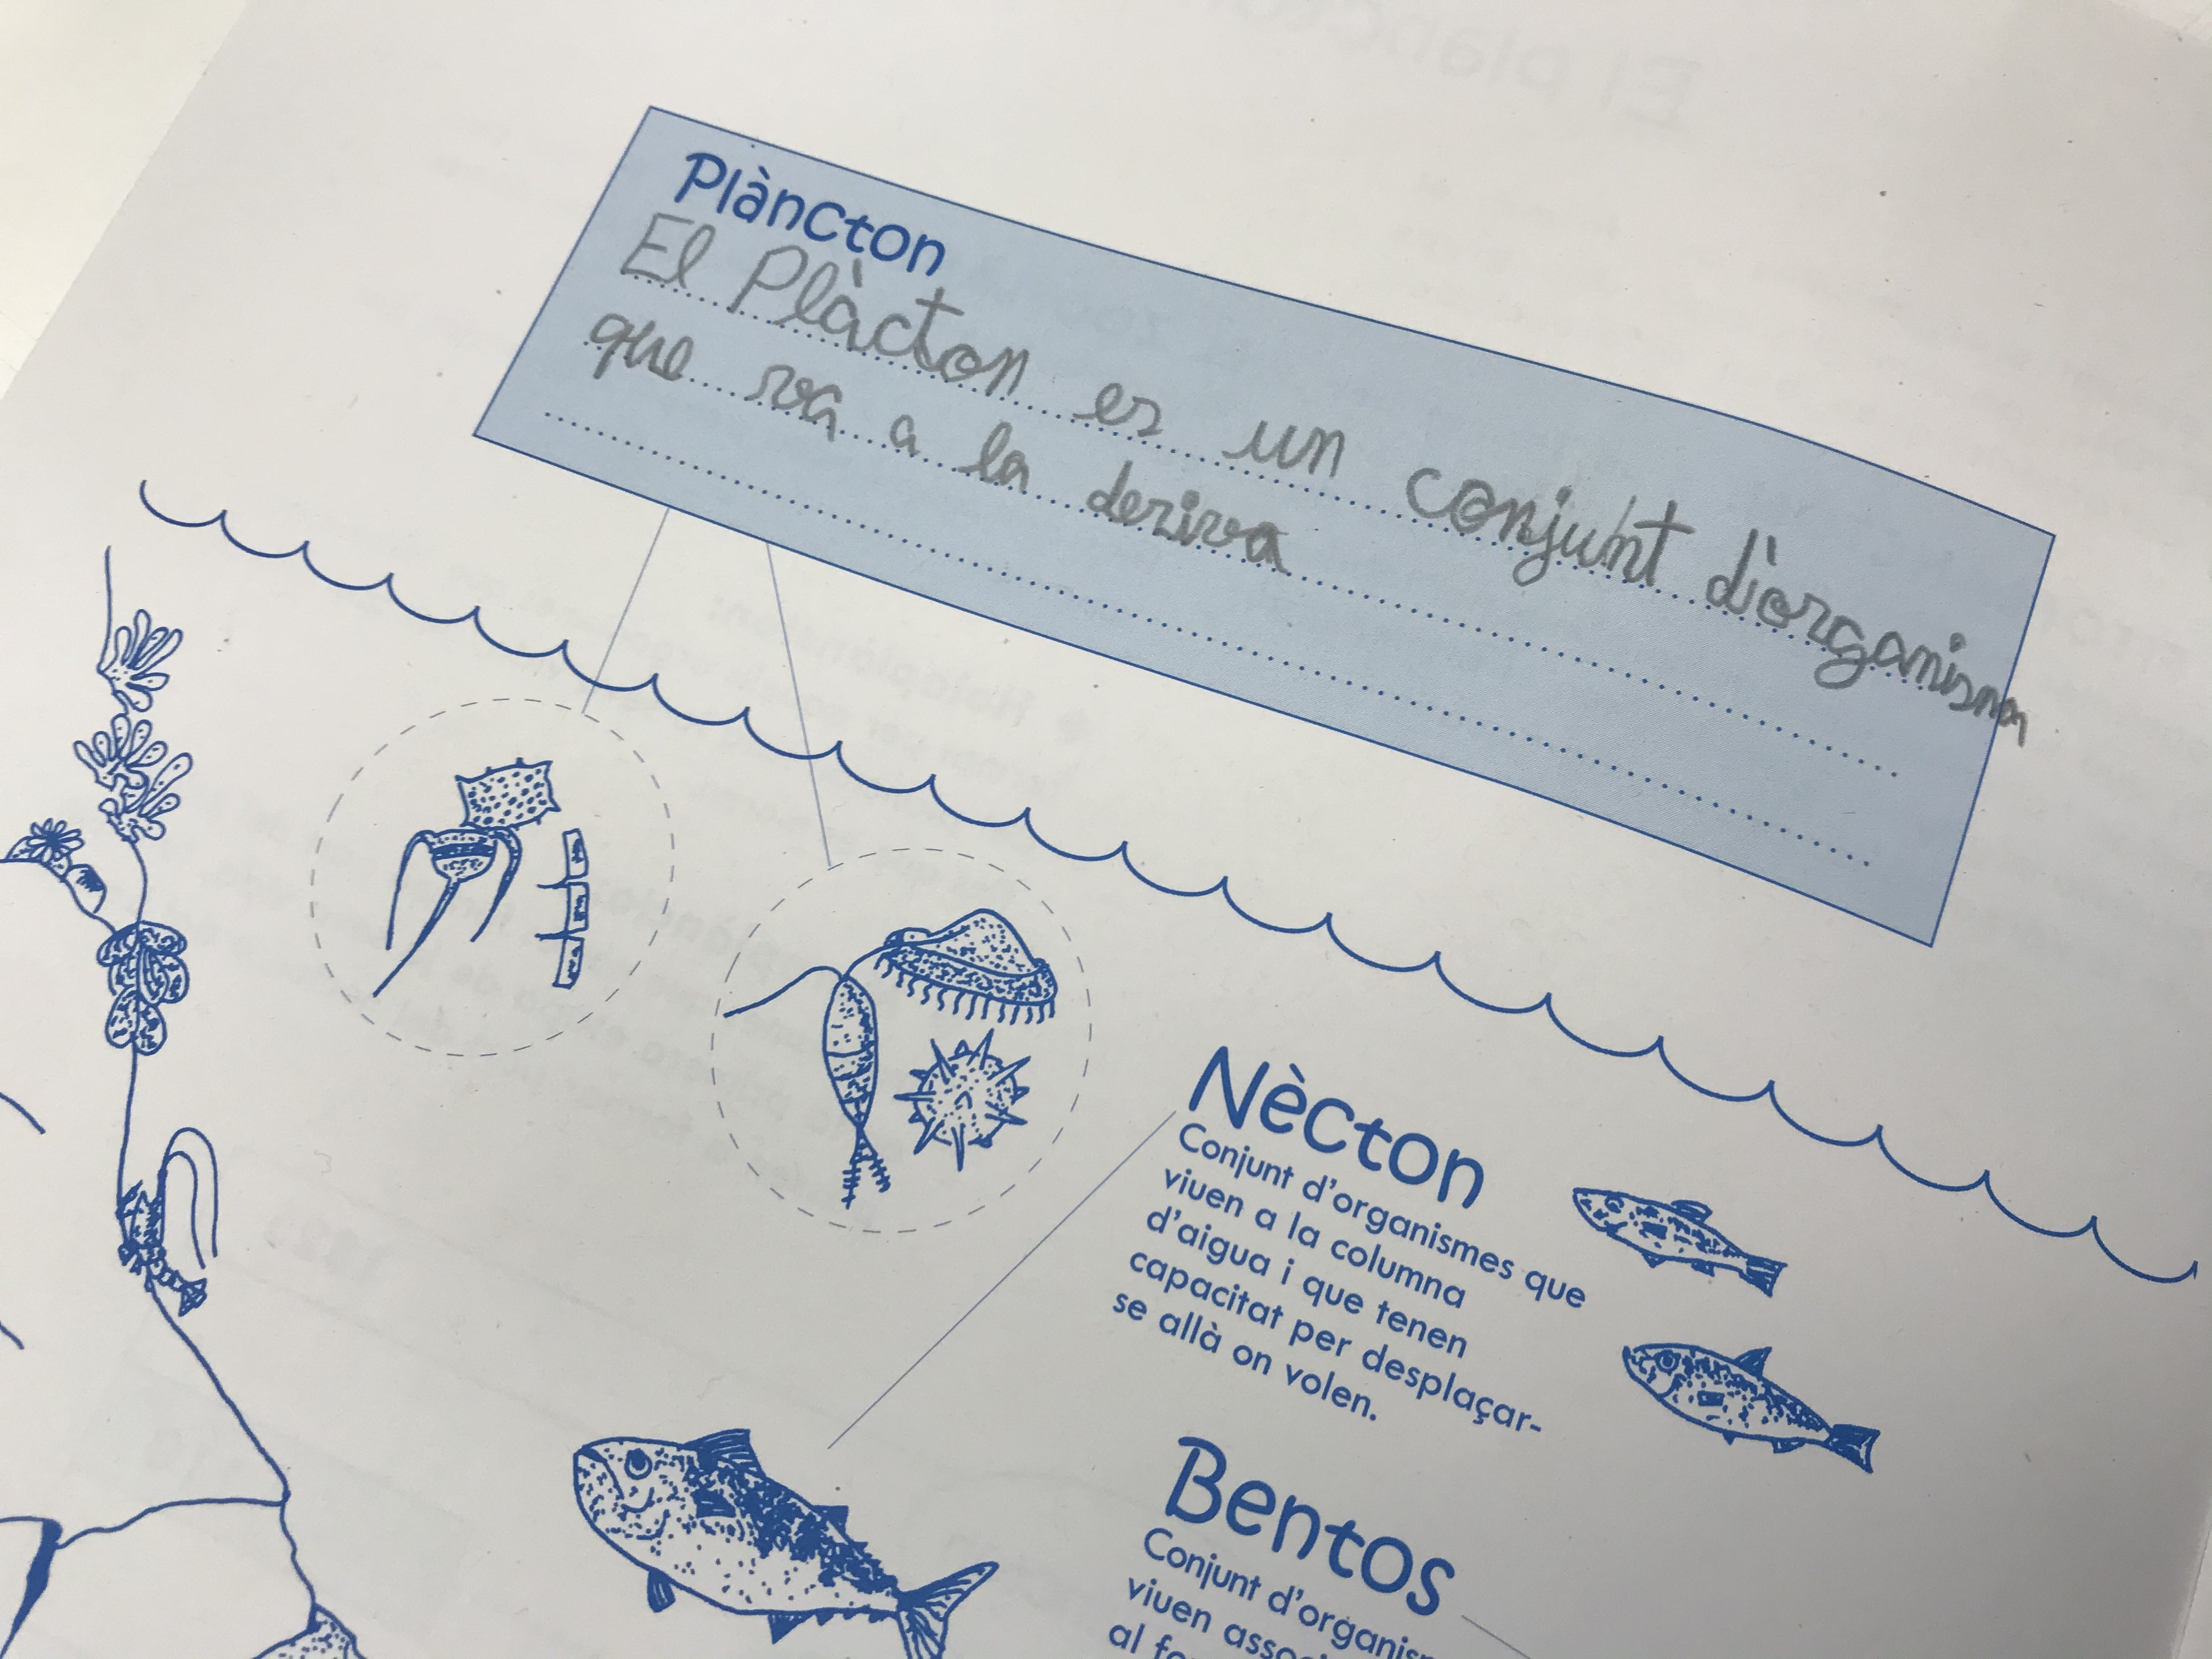 Plàncton
El Plàcton es un conjunt d'organismes
que va a la deriva
Nècton
Conjunt d'organismes que
viuen a la columna
d'aigua i que tenen
capacitat per desplaçar-
se allà on volen.
Bentos
Conjunt
viuen
al